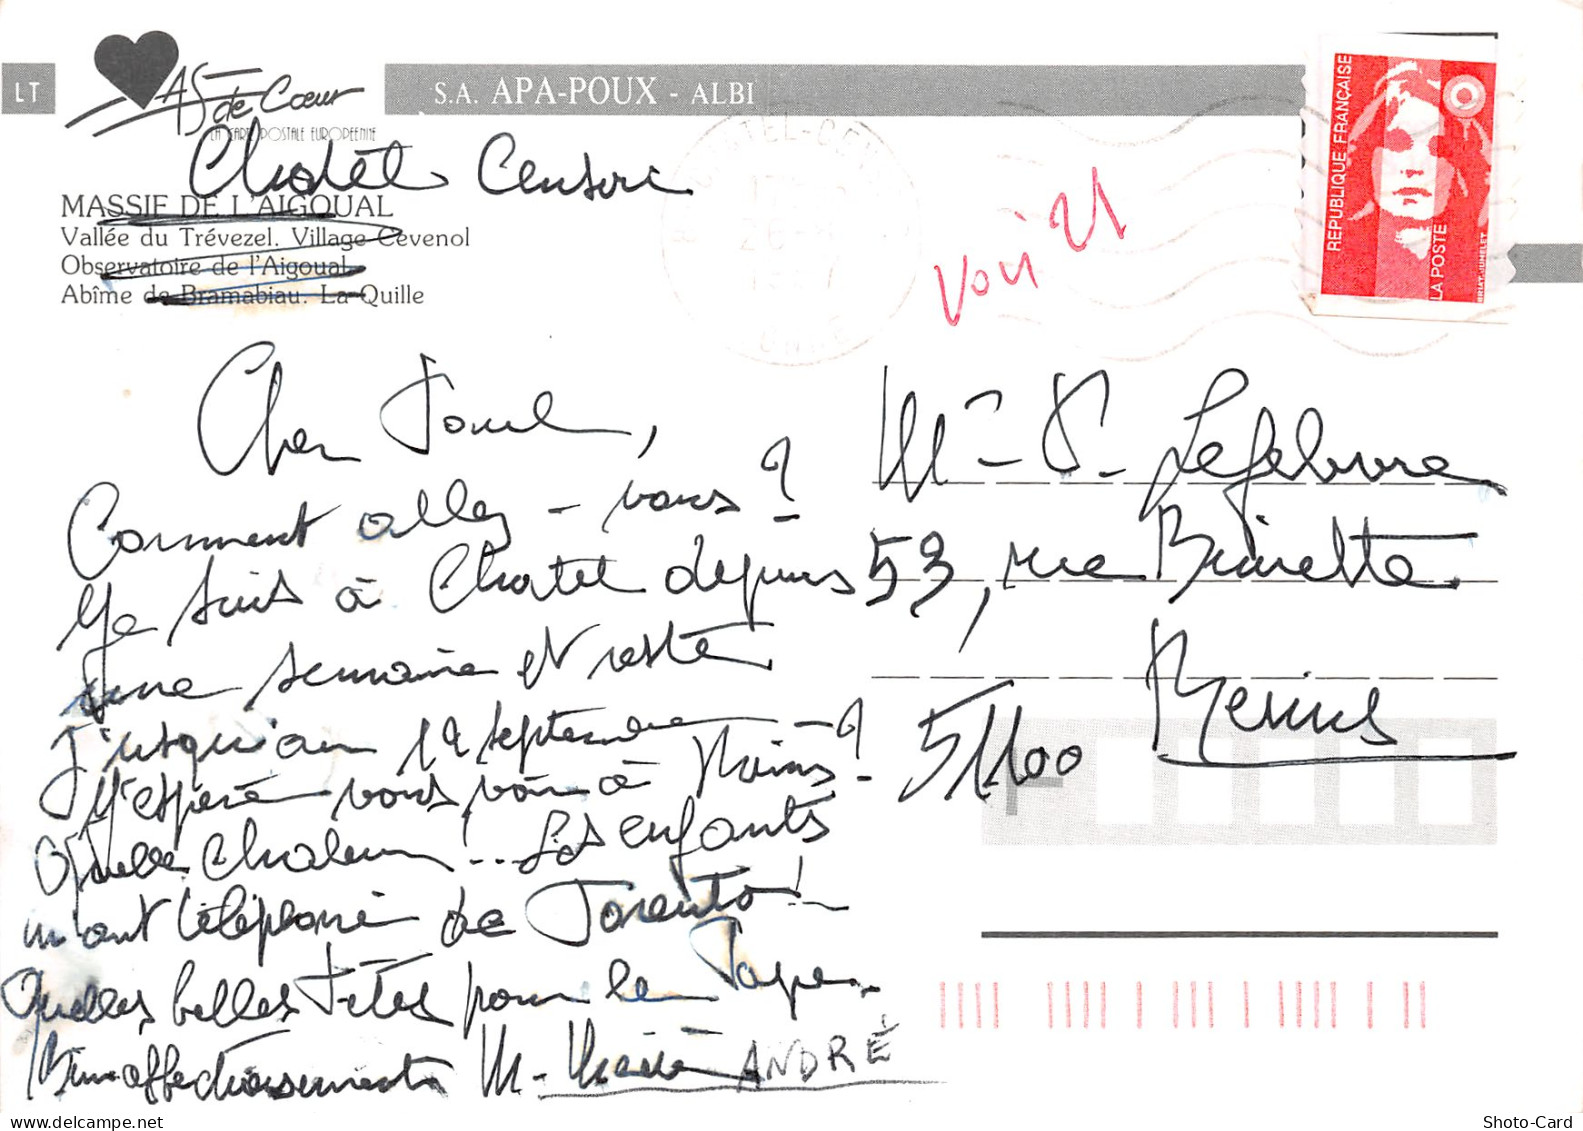 LT
AS de Cœur
LA CARTE POSTALE EUROPÉENNE
S.A. APA-POUX - ALBI
Chatêl Censoir
MASSIF DE L'AIGOUAL
Vallée du Trévezel. Village Cévenol
Observatoire de l'Aigoual
Abîme de Bramabiau. La Quille
RÉPUBLIQUE FRANÇAISE
LA POSTE
Comment allez-vous ?
Je suis à Chatel depuis
une semaine et reste
jusqu'au 12 septembre
J'espère vous voir à Reims ?
Quelle chaleur !.. Les enfants
m'ont téléphoné de Toronto !
Quelles belles fêtes pour le Pape.
Bien affectueusement M-
ANDRÉ
Lefebvre
53, rue Brimelte
51100 Reims
Shoto-Card